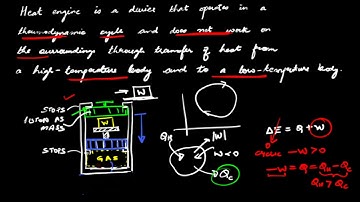 Heat engine is a device that operates in a
thermodynamic cycle and does net work on
the surroundings through transfer of heat from
a high-temperature body and to a low-temperature body.
W
STOPS
PISTON AS
MASS
W
STOPS
GAS
Q_H
|W|
W<0
Q_C
ΔE = Q + W
cyclic -W>0
-W = Q = Q_H - Q_C
Q_H > Q_C